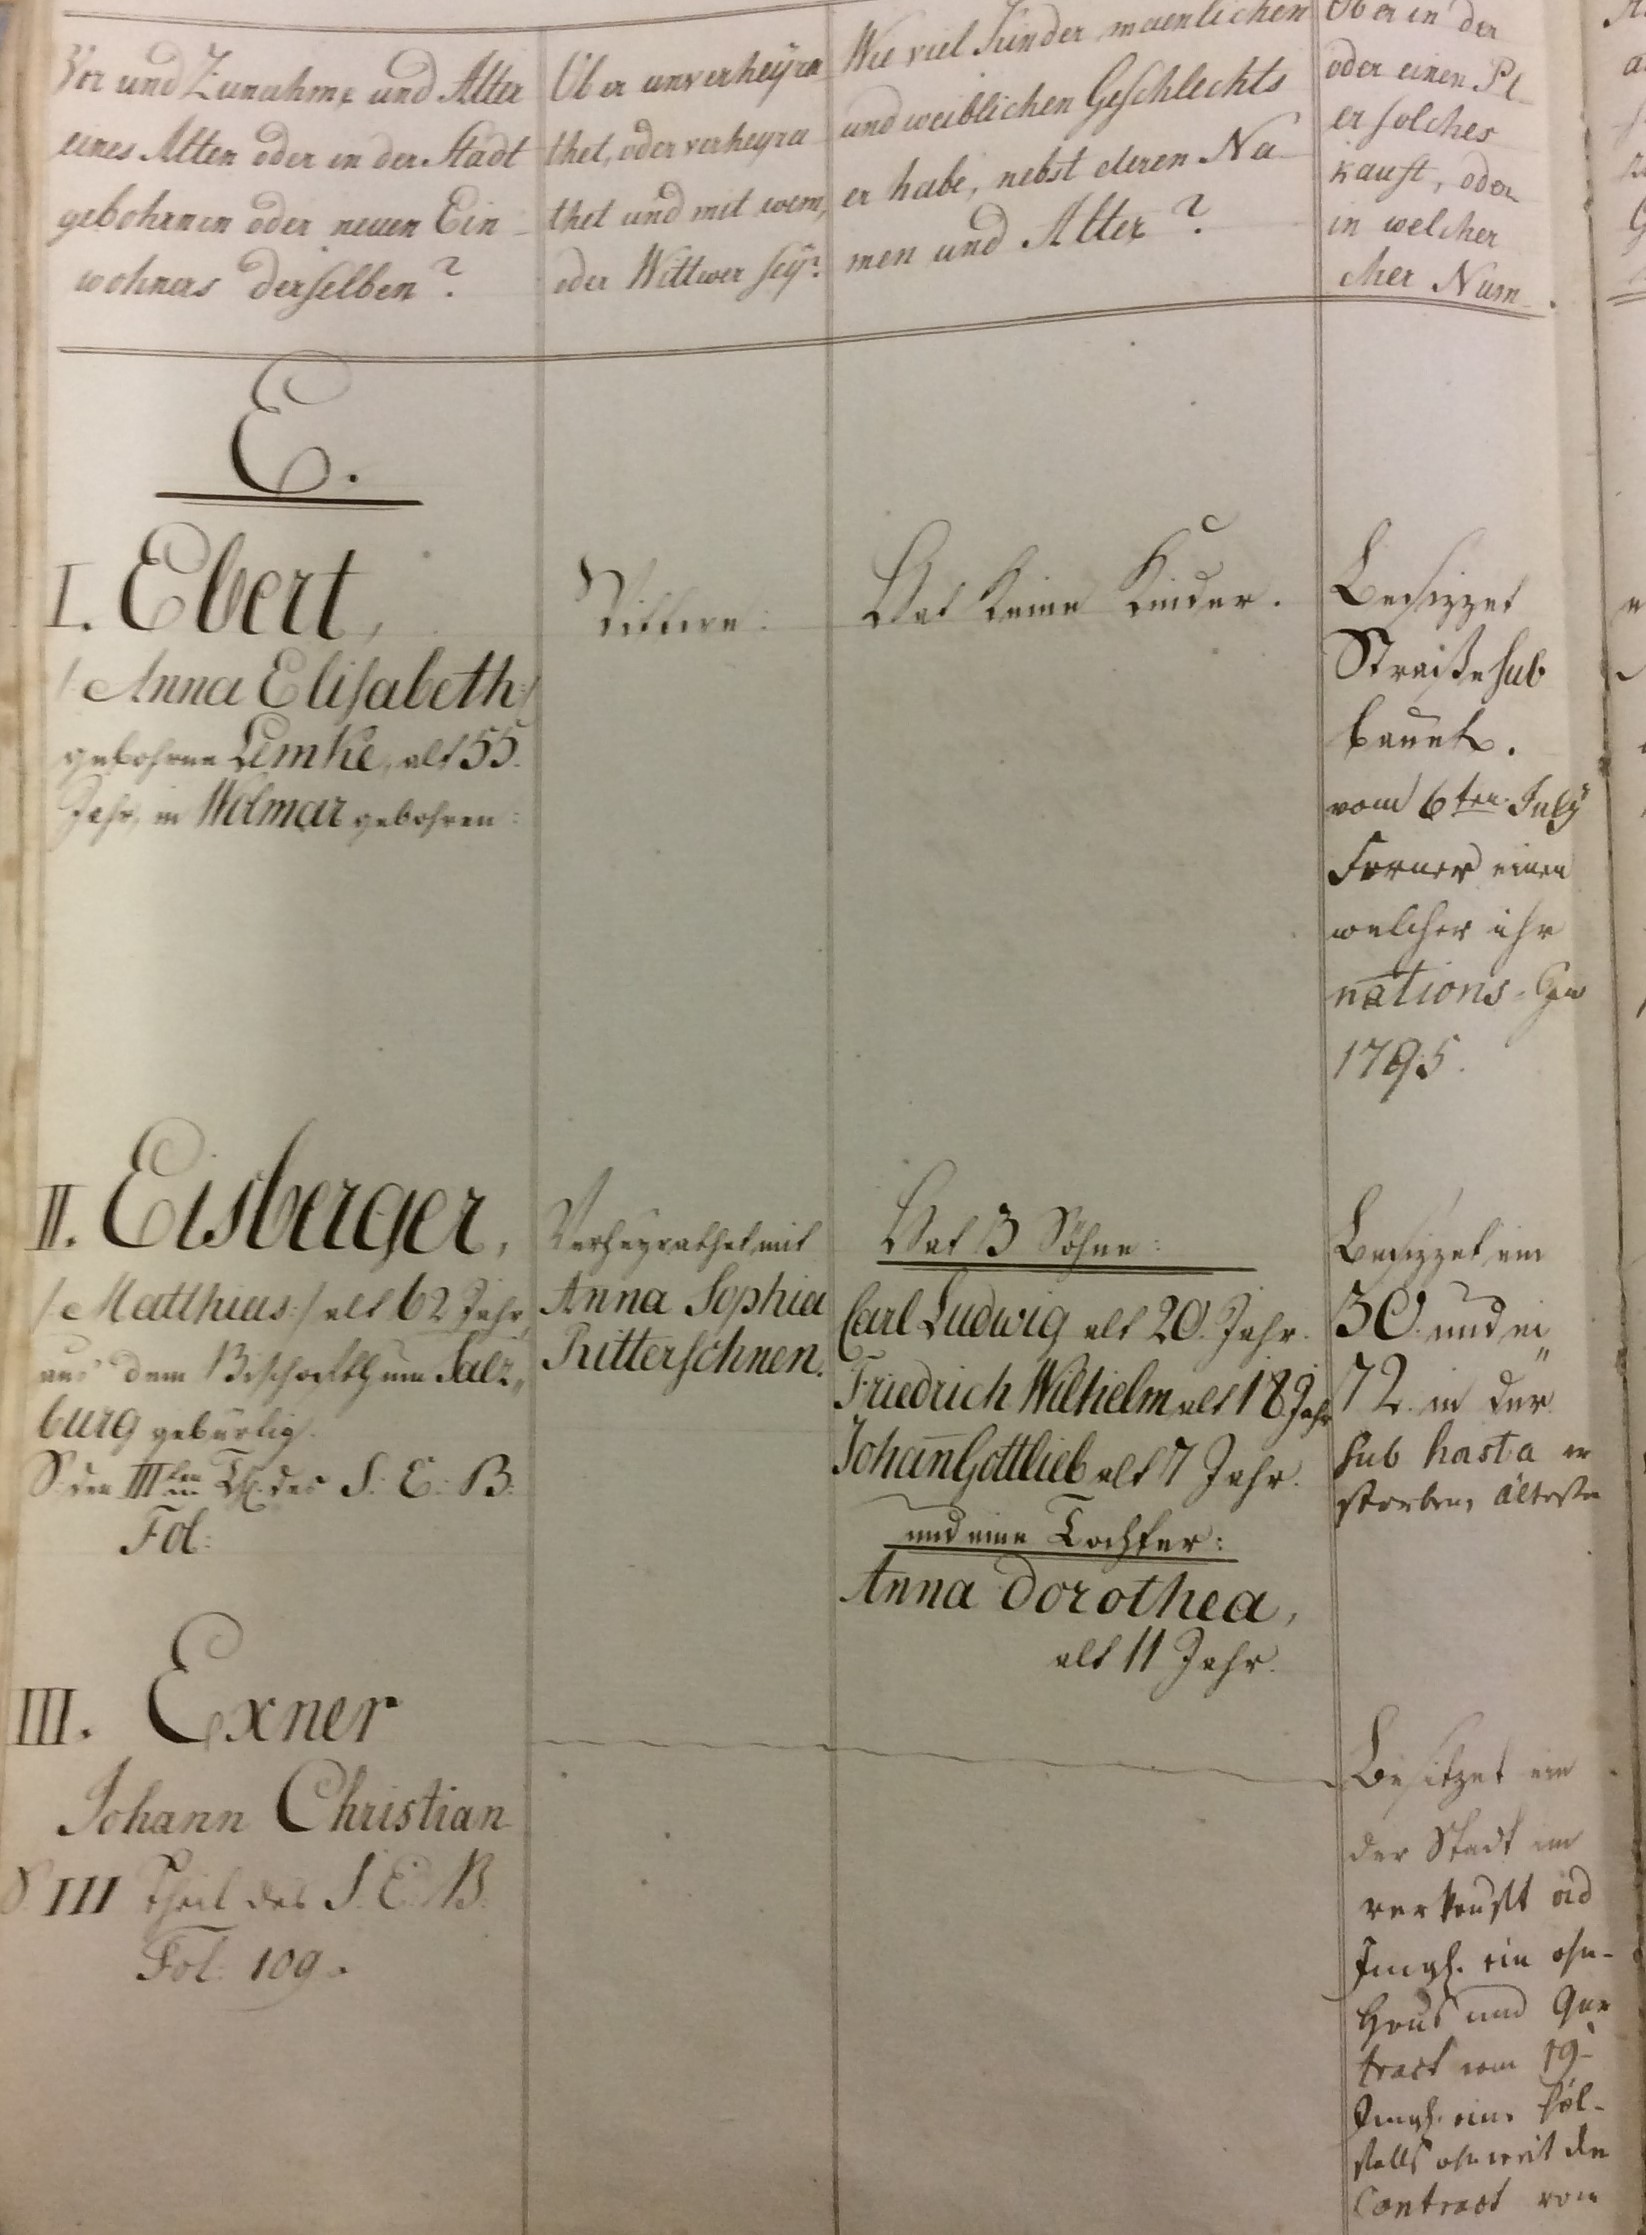 Vor und Zunahme und Alter
eines Alten oder in der Stadt
gebohrnen oder neuen Ein-
wohners derselben?
Ob er unverheyra-
thet, oder verheyra-
thet und mit wem,
oder Wittwer sey?
Wie viel Kinder maenlichen
und weiblichen Geschlechts
er habe, nebst deren Na-
men und Alter?
Ob er in der
oder einen Pl-
er solches
kauft, oder
in welcher
cher Num-
E.
I. Ebert,
/: Anna Elisabeth :/
gebohrne Lemke, alt 55.
Jahr, in Wolmar gebohren:
Wittwe:
Hat keine Kinder.
Besizzet
Straiße sub
bauet.
vom 6ten July
Ferner einen
welcher ihr
nations-
1795.
II. Eisberger,
/: Matthias :/ alt 62 Jahr,
aus dem Bischoffthum Salz„
burg gebürtig.
S. den IIIten Th. des S. E. B.
Fol:
Verheyrathet mit
Anna Sophia
Ritterschnen.
Hat 3 Söhne:
Carl Ludwig alt 20. Jahr.
Friedrich Wilhelm alt 18 Jahr
Johan̄ Gottlieb alt 7 Jahr.
und eine Tochter:
Anna Dorothea,
alt 11 Jahr.
Besizzet ein
30. und ei„
72. in der
sub hasta er
storben, älteste
III. Exner
Johann Christian
S. III Theil des S. E. B.
Fol: 109.
Besitzet ein
der Stadt im
verkauft ad
Imgl. ein ohn-
Haus und Gar
tract vom 19-
Imgl. ein
stalls ohnweit de
Contract vom